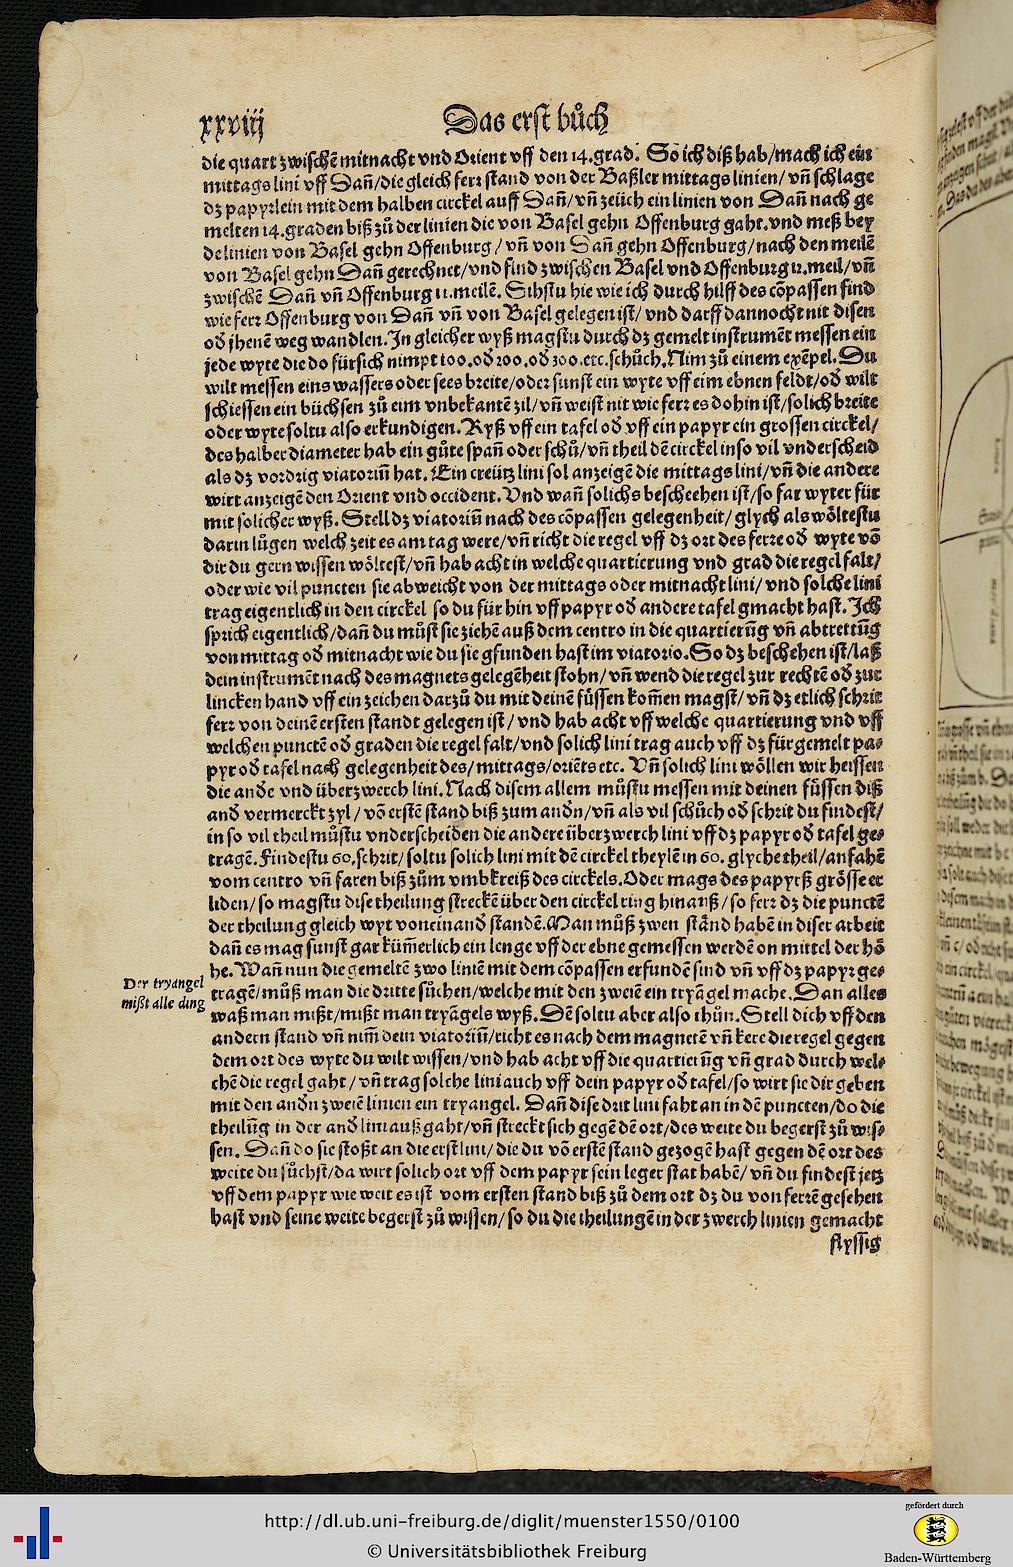 xxviij
Das erst bůch
die quart zwischē mitnacht vnd Orient vff den 14.grad. So ich diß hab/mach ich ein
mittags lini vff Dañ/die gleich ferr stand von der Baßler mittags linien/ vñ schlage
dz papyrlein mit dem halben circkel auff Dañ/vñ zeüch ein linien von Dañ nach ge
melten 14.graden biß zů der linien die von Basel gehn Offenburg gaht.vnd meß bey
de linien von Basel gehn Offenburg/ vñ von Dañ gehn Offenburg/nach den meilē
von Basel gehn Dañ gerechnet/vnd find zwischen Basel vnd Offenburg 12.meil/vñ
zwischē Dañ vñ Offenburg 11.meilē. Sihstu hie wie ich durch hilff des cōpassen find
wie ferr Offenburg von Dañ vñ von Basel gelegen ist/ vnd darff dannocht nit disen
od jhenē weg wandlen.In gleicher wyß magstu durch dz gemelt instrumēt messen ein
jede wyte die do fürsich nimpt 100.od 200.od 300.etc.schůch.Nim zů einem exēpel.Du
wilt messen eins wassers oder sees breite/oder sunst ein wyte vff eim ebnen feldt/od wilt
schiessen ein büchsen zů eim vnbekantē zil/vñ weist nit wie ferr es dohin ist/solich breite
oder wyte soltu also erkundigen.Ryß vff ein tafel od vff ein papyr ein grossen circkel/
des halber diameter hab ein gůte spañ oder schů/vñ theil dē circkel inso vil vnderscheid
als dz vordrig viatoriū hat. Ein creütz lini sol anzeigē die mittags lini/vñ die andere
wirt anzeigē den Orient vnd occident.Vnd wañ solichs bescheehen ist/so far wyter für
mit solicher wyß. Stell dz viatoriū nach des cōpassen gelegenheit/ glych als wöltestu
darin lůgen welch zeit es am tag were/vñ richt die regel vff dz ort des ferre od wyte vō
dir du gern wissen wöltest/vñ hab acht in welche quartierung vnd grad die regel falt/
oder wie vil puncten sie abweicht von der mittags oder mitnacht lini/ vnd solche lini
trag eigentlich in den circkel so du für hin vff papyr od andere tafel gmacht hast.Ich
sprich eigentlich/dañ du můst sie ziehē auß dem centro in die quartierūg vñ abtrettūg
von mittag od mitnacht wie du sie gfunden hast im viatorio.So dz beschehen ist/laß
dein instrumēt nach des magnets gelegēheit stohn/vñ wend die regel zur rechtē od zur
lincken hand vff ein zeichen darzů du mit deinē füssen kom̄en magst/vñ dz etlich schrit
ferr von deinē ersten standt gelegen ist/ vnd hab acht vff welche quartierung vnd vff
welchen punctē od graden die regel falt/vnd solich lini trag auch vff dz fürgemelt pa⸗
pyr od tafel nach gelegenheit des/mittags/oriēts etc. Vñ solich lini wöllen wir heissen
die ande vnd überzwerch lini.Nach disem allem můstu messen mit deinen füssen diß
and vermerckt zyl/ vō erstē stand biß zum andn/vñ als vil schůch od schrit du findest/
in so vil theil můstu vnderscheiden die andere überzwerch lini vff dz papyr od tafel ge⸗
tragē.Findestu 60.schrit/soltu solich lini mit dē circkel theylē in 60. glyche theil/anfahē
vom centro vñ faren biß zům vmbkreiß des circkels.Oder mags des papyrß grösse er
liden/so magstu dise theilung streckē über den circkel ring hinauß/so ferr dz die punctē
der theilung gleich wyt voneinand standē.Man můß zwen ständ habē in diser arbeit
dañ es mag sunst gar küm̄erlich ein lenge vff der ebne gemessen werdē on mittel der hö
he.Wañ nun die gemeltē zwo liniē mit dem cōpassen erfundē sind vñ vff dz papyr ge⸗
tragē/můß man die dritte sůchen/welche mit den zweiē ein tryāgel mache.Dan alles
waß man mißt/mißt man tryāgels wyß.Dē soltu aber also thůn.Stell dich vff den
andern stand vñ nim̄ dein viatoriū/richt es nach dem magnetē vñ kere die regel gegen
dem ort des wyte du wilt wissen/vnd hab acht vff die quartierūg vñ grad durch wel⸗
chē die regel gaht/vñ trag solche lini auch vff dein papyr od tafel/so wirt sie dir geben
mit den andn zweiē linien ein tryangel. Dañ dise drit lini faht an in dē puncten/do die
theilūg in der and lini außgaht/vñ streckt sich gegē dē ort/des weite du begerst zů wis⸗
sen. Dañ do sie stoßt an die erst lini/ die du vō erstē stand gezogē hast gegen dē ort des
weite du sůchst/da wirt solich ort vff dem papyr sein leger stat habē/ vñ du findest jetz
vff dem papyr wie weit es ist vom ersten stand biß zů dem ort dz du von ferrē gesehen
hast vnd seine weite begerst zů wissen/so du die theilungē in der zwerch linien gemacht
flyssig
Der tryangel
mißt alle ding
http://dl.ub.uni-freiburg.de/diglit/muenster1550/0100
© Universitätsbibliothek Freiburg
gefördert durch
Baden-Württemberg